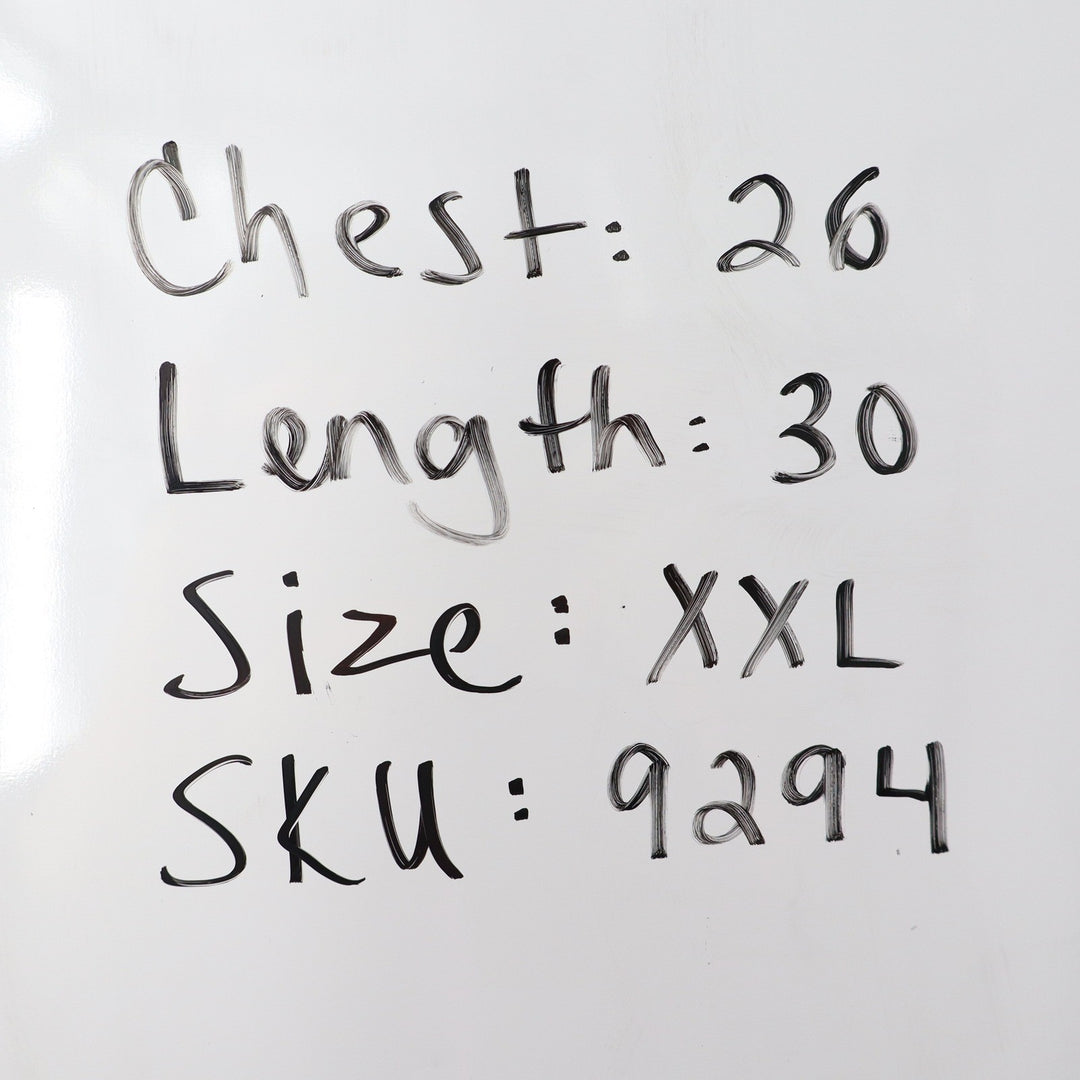 Chest: 26
Length: 30
Size: XXL
SKU: 9294